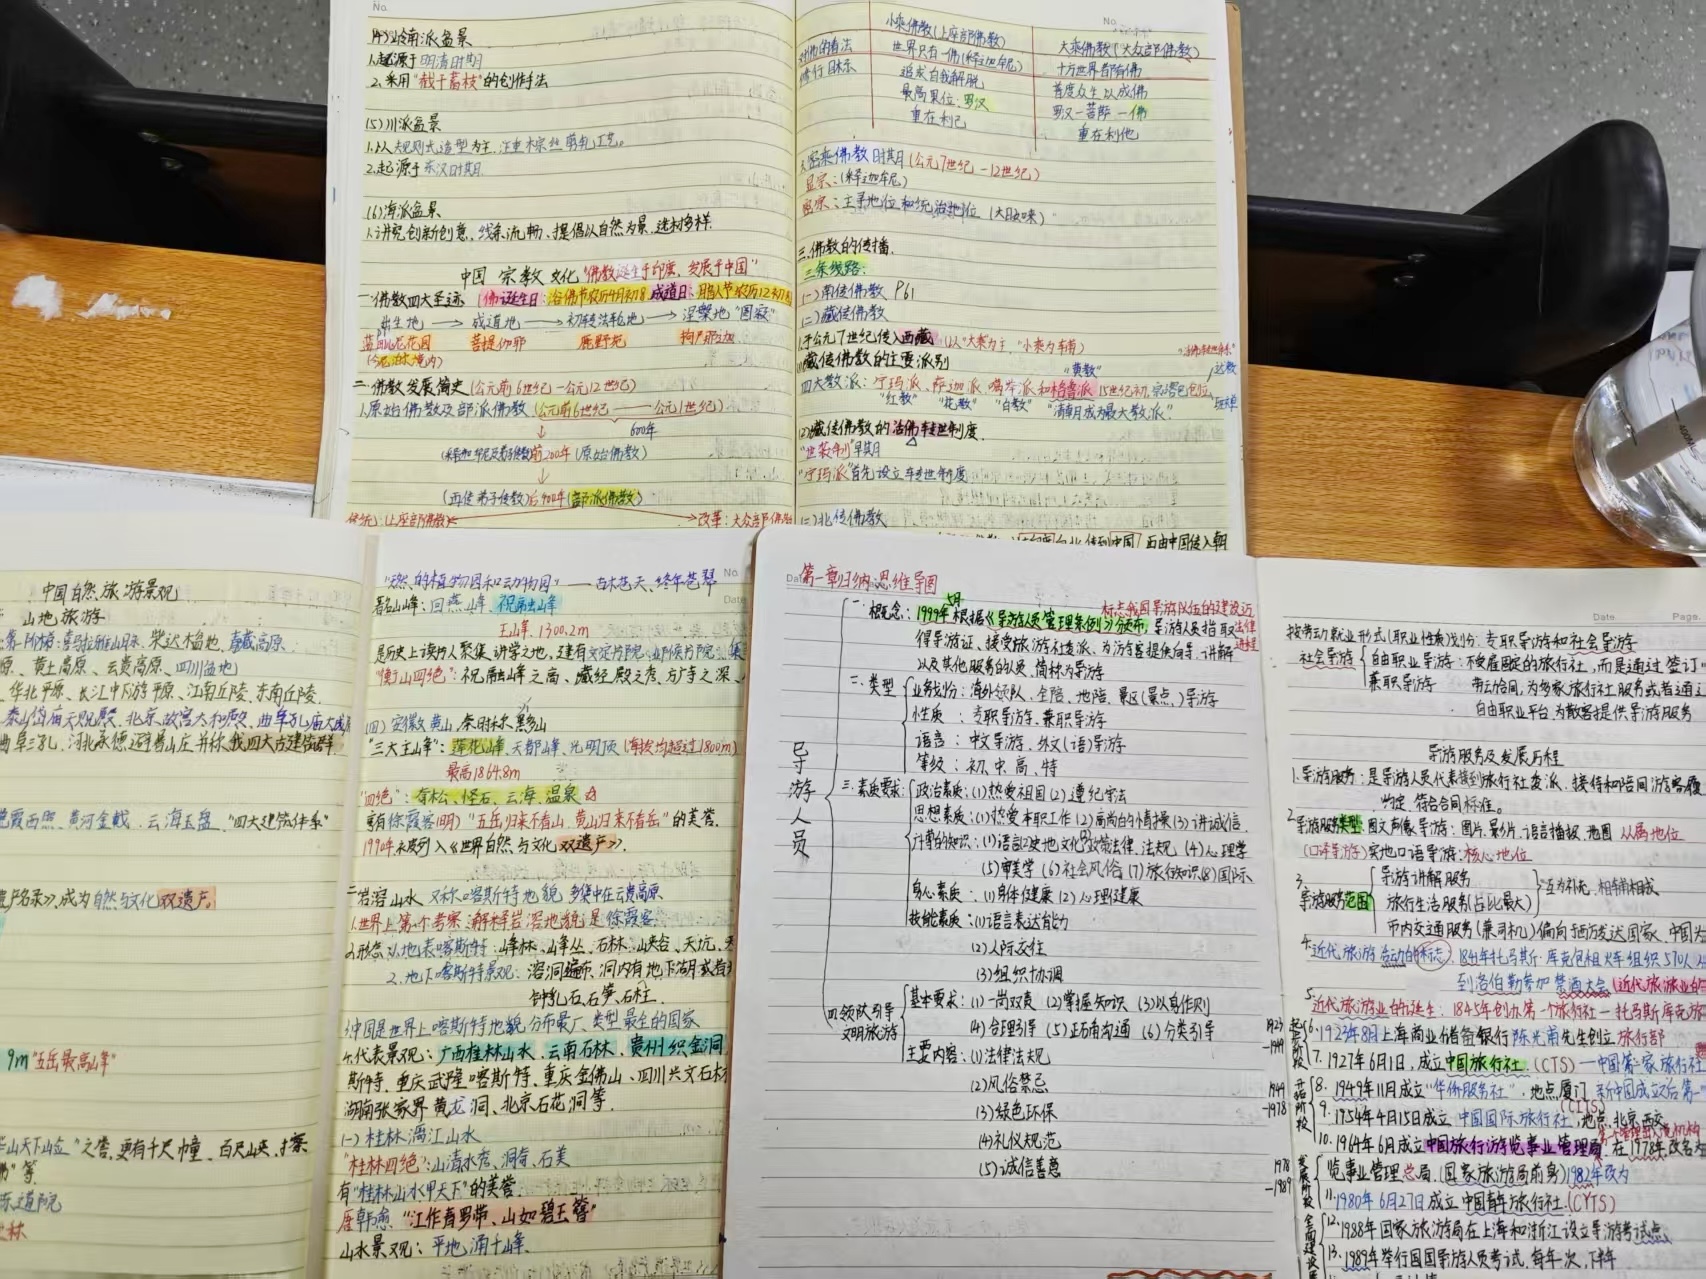 No.
(4)岭南派盆景
1.起源于明清时期
2.采用"截干蓄枝"的创作手法
(5)川派盆景
1.以规则式造型为主,注重棕丝剪扎工艺。
2.起源于东汉时期
(6)海派盆景
1.讲究创新创意,线条流畅、提倡以自然为景,选材多样.
中国宗教文化"佛教诞生于印度,发展于中国"
一.佛教四大圣迹 佛诞生日:浴佛节农历4月初8 成道日:
出生地→成道地→初转法轮地→涅槃地"圆寂"
蓝毗尼花园 菩提伽耶 鹿野苑 拘尸那迦
(今尼泊尔境内)
二.佛教发展简史(公元前6世纪-公元12世纪)
1.原始佛教及部派佛教(公元前6世纪——公元1世纪)
600年
前200年(原始佛教)
(再传弟子传教)后400年(部派佛教)
传统:(上座部佛教) 改革:大众部佛教
No.
小乘佛教(上座部佛教) 大乘佛教(大众部佛教)
对佛的看法 世界只有一佛(释迦牟尼) 十方世界都有佛
修行目标 追求自我解脱 普度众生以成佛
最高果位:罗汉 罗汉—菩萨—佛
重在利己 重在利他
3.密乘佛教时期(公元7世纪-12世纪)
显宗:(释迦牟尼)
密宗:主导地位和统治地位(大日如来)
三.佛教的传播.
三条线路:
(一)南传佛教 P61
(二)藏传佛教
1.于公元7世纪传入西藏(以"大乘为主,"小乘为辅)
(1)藏传佛教的主要派别 "黄教"
四大教派:宁玛派、萨迦派、噶举派和格鲁派 15世纪初,宗喀巴
"红教" "花教" "白教" "清朝成为最大教派"
(2)藏传佛教的活佛转世制度.
"世袭制"早期
(三)北传佛教
中国自然旅游景观
山地旅游
喜马拉雅山脉、柴达木盆地、青藏高原.
原、黄土高原、云贵高原、四川盆地
华北平原、长江中下游平原、江南丘陵、东南丘陵.
泰山岱庙天贶殿、北京故宫太和殿、曲阜孔庙大成殿
曲阜三孔、河北承德避暑山庄并称我四大古建筑群
晚霞夕照、黄河金带、云海玉盘 "四大建筑体系"
名录》,成为自然与文化双遗产.
9m"五岳最高峰"
华山天下山立"之誉,更有千尺幢、百尺峡、擦
等.
No.
Date
"天然的植物园和动物园"
著名山峰:回雁峰、祝融峰
主峰,1300.2m
是历史上读书人聚集、讲学之地,建有文定书院、邺侯书院、集
"衡山四绝":祝融峰之高、藏经殿之秀、方广寺之深、
(四)安徽黄山,
"三大主峰":莲花峰、天都峰、光明顶(海拔均超过1800m)
最高1864.8m
"四绝":奇松、怪石、云海、温泉
享有徐霞客(明)"五岳归来不看山,黄山归来不看岳"的美誉.
1990年被列入《世界自然与文化双遗产》.
二.岩溶山水 又称喀斯特地貌 多集中在云贵高原
1.世界上第一个考察、溶岩地貌是徐霞客
2.形态 1.地表喀斯特:峰林、峰丛、石林、峡谷、天坑、
2.地下喀斯特景观:溶洞遍布,洞内有地下湖或者
钟乳石、石笋、石柱.
3.中国是世界上喀斯特地貌分布最广、类型最全的国家
4.代表景观:广西桂林山水、云南石林、贵州织金洞
斯特、重庆武隆喀斯特、重庆金佛山、四川兴文石林
湖南张家界黄龙洞、北京石花洞等.
(一)桂林漓江山水
"桂林四绝":山清水秀、洞奇、石美
有"桂林山水甲天下"的美誉
唐韩愈"江作青罗带、山如碧玉簪"
山水景观:平地涌千峰.
Date
第一章归纳思维导图
导游人员
一.概念:1999年根据《导游人员管理条例》分布,导游人员指取
标志我国导游队伍的建设迈
法律
进程
得导游证、接受旅游社委派、为游客提供向导、讲解
以及其他服务的人员,简称为导游
二.类型 业务划分:海外领队、全陪、地陪、景区(景点)导游
性质:专职导游、兼职导游
语言:中文导游、外文(语)导游
等级:初、中、高、特
三.素质要求: 政治素质:(1)热爱祖国(2)遵纪守法
思想素质:(1)热爱本职工作(2)高尚的情操(3)讲诚信
(4)心理学
(5)审美学(6)社会风俗(7)旅行知识(8)国际
身心素质:(1)身体健康(2)心理健康
技能素质:(1)语言表达能力
(2)人际交往
(3)组织协调
四.领队引导文明旅游 基本要求:(1)一岗双责 (2)掌握知识 (3)以身作则
(4)合理引导 (5)正确沟通 (6)分类引导
主要内容:(1)法律法规
(2)风俗禁忌
(3)绿色环保
(4)礼仪规范
(5)诚信善意
Date.
Page
按劳动就业形式(职业性质)划分:专职导游和社会导游
社会导游 自由职业导游:不受雇固定的旅行社,而是通过签订
兼职导游 劳动合同,为多家旅行社服务或者通过
自由职业平台,为散客提供导游服务
导游服务及发展历程
1.导游服务:是导游人员代表接到旅行社委派,接待和陪同游客
约定符合合同标准。
2.导游服务类型:图文声像导游:图片、影片、语言播报、地图 从属地位
实地口语导游:核心地位
3.导游服务范围 导游讲解服务 互为补充,相辅相成
旅行生活服务(占比最大)
市内交通服务(兼司机)偏向于西方发达国家、中国
4.近代旅游活动的标志:1841年托马斯·库克包租火车组织570人
到洛伯勒参加禁酒大会(近代旅游业的
5.近代旅游业的诞生:1845年创办第一个旅行社—托马斯库克旅
1923—1949 起步阶段
6.1923年8月上海商业储备银行陈光甫先生创立旅行部
7.1927年6月1日,成立中国旅行社.(CTS)—中国第一家旅行社
1949—1978 开拓阶段
8.1949年11月成立"华侨服务社",地点厦门,新中国成立后第一
9.1954年4月15日成立中国国际旅行社(CITS),地点,北京西交
10.1964年6月成立中国旅行游览事业管理局.在1978年改名
1978—1989 发展阶段
览事业管理总局(国家旅游局前身)1982年改为
11.1980年6月27日成立中国青年旅行社.(CYTS)
全面建设
12.1988年国家旅游局在上海和浙江设立导游考试点.
13.1989年举行全国导游人员考试,每年一次,下半年